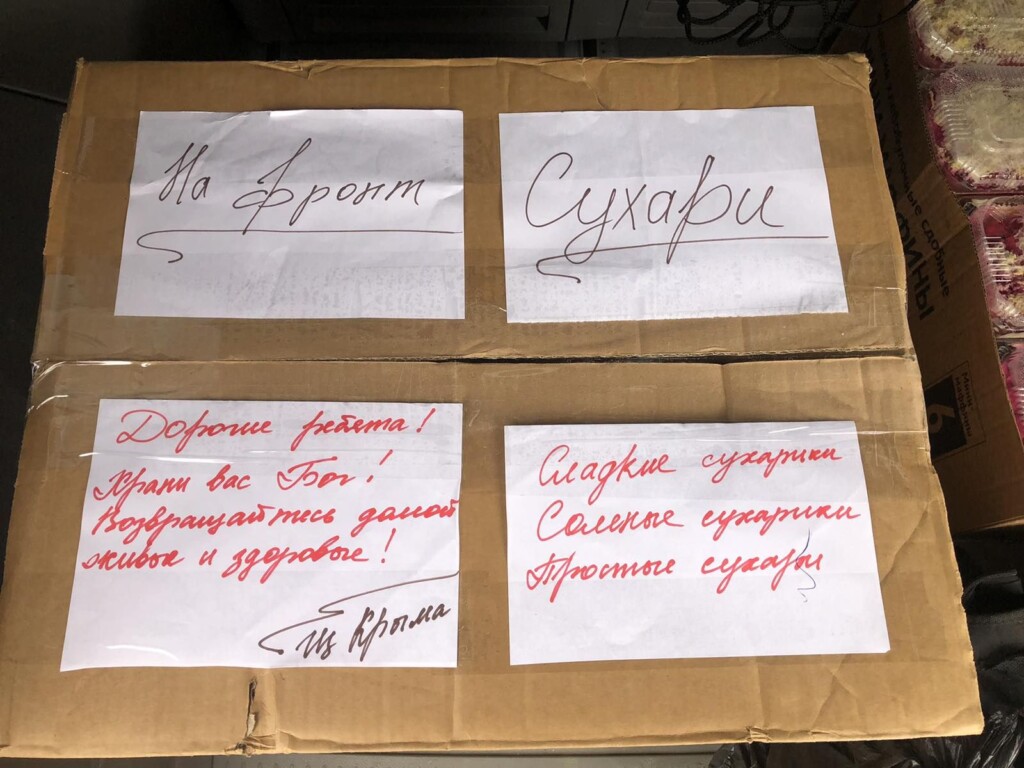 На фронт
Сухари
Дорогие ребята!
Храни вас Бог!
Возвращайтесь домой
живые и здоровые!
Из Крыма
Сладкие сухарики
Соленые сухарики
Простые сухари
сдобные
Мини
маффины
6